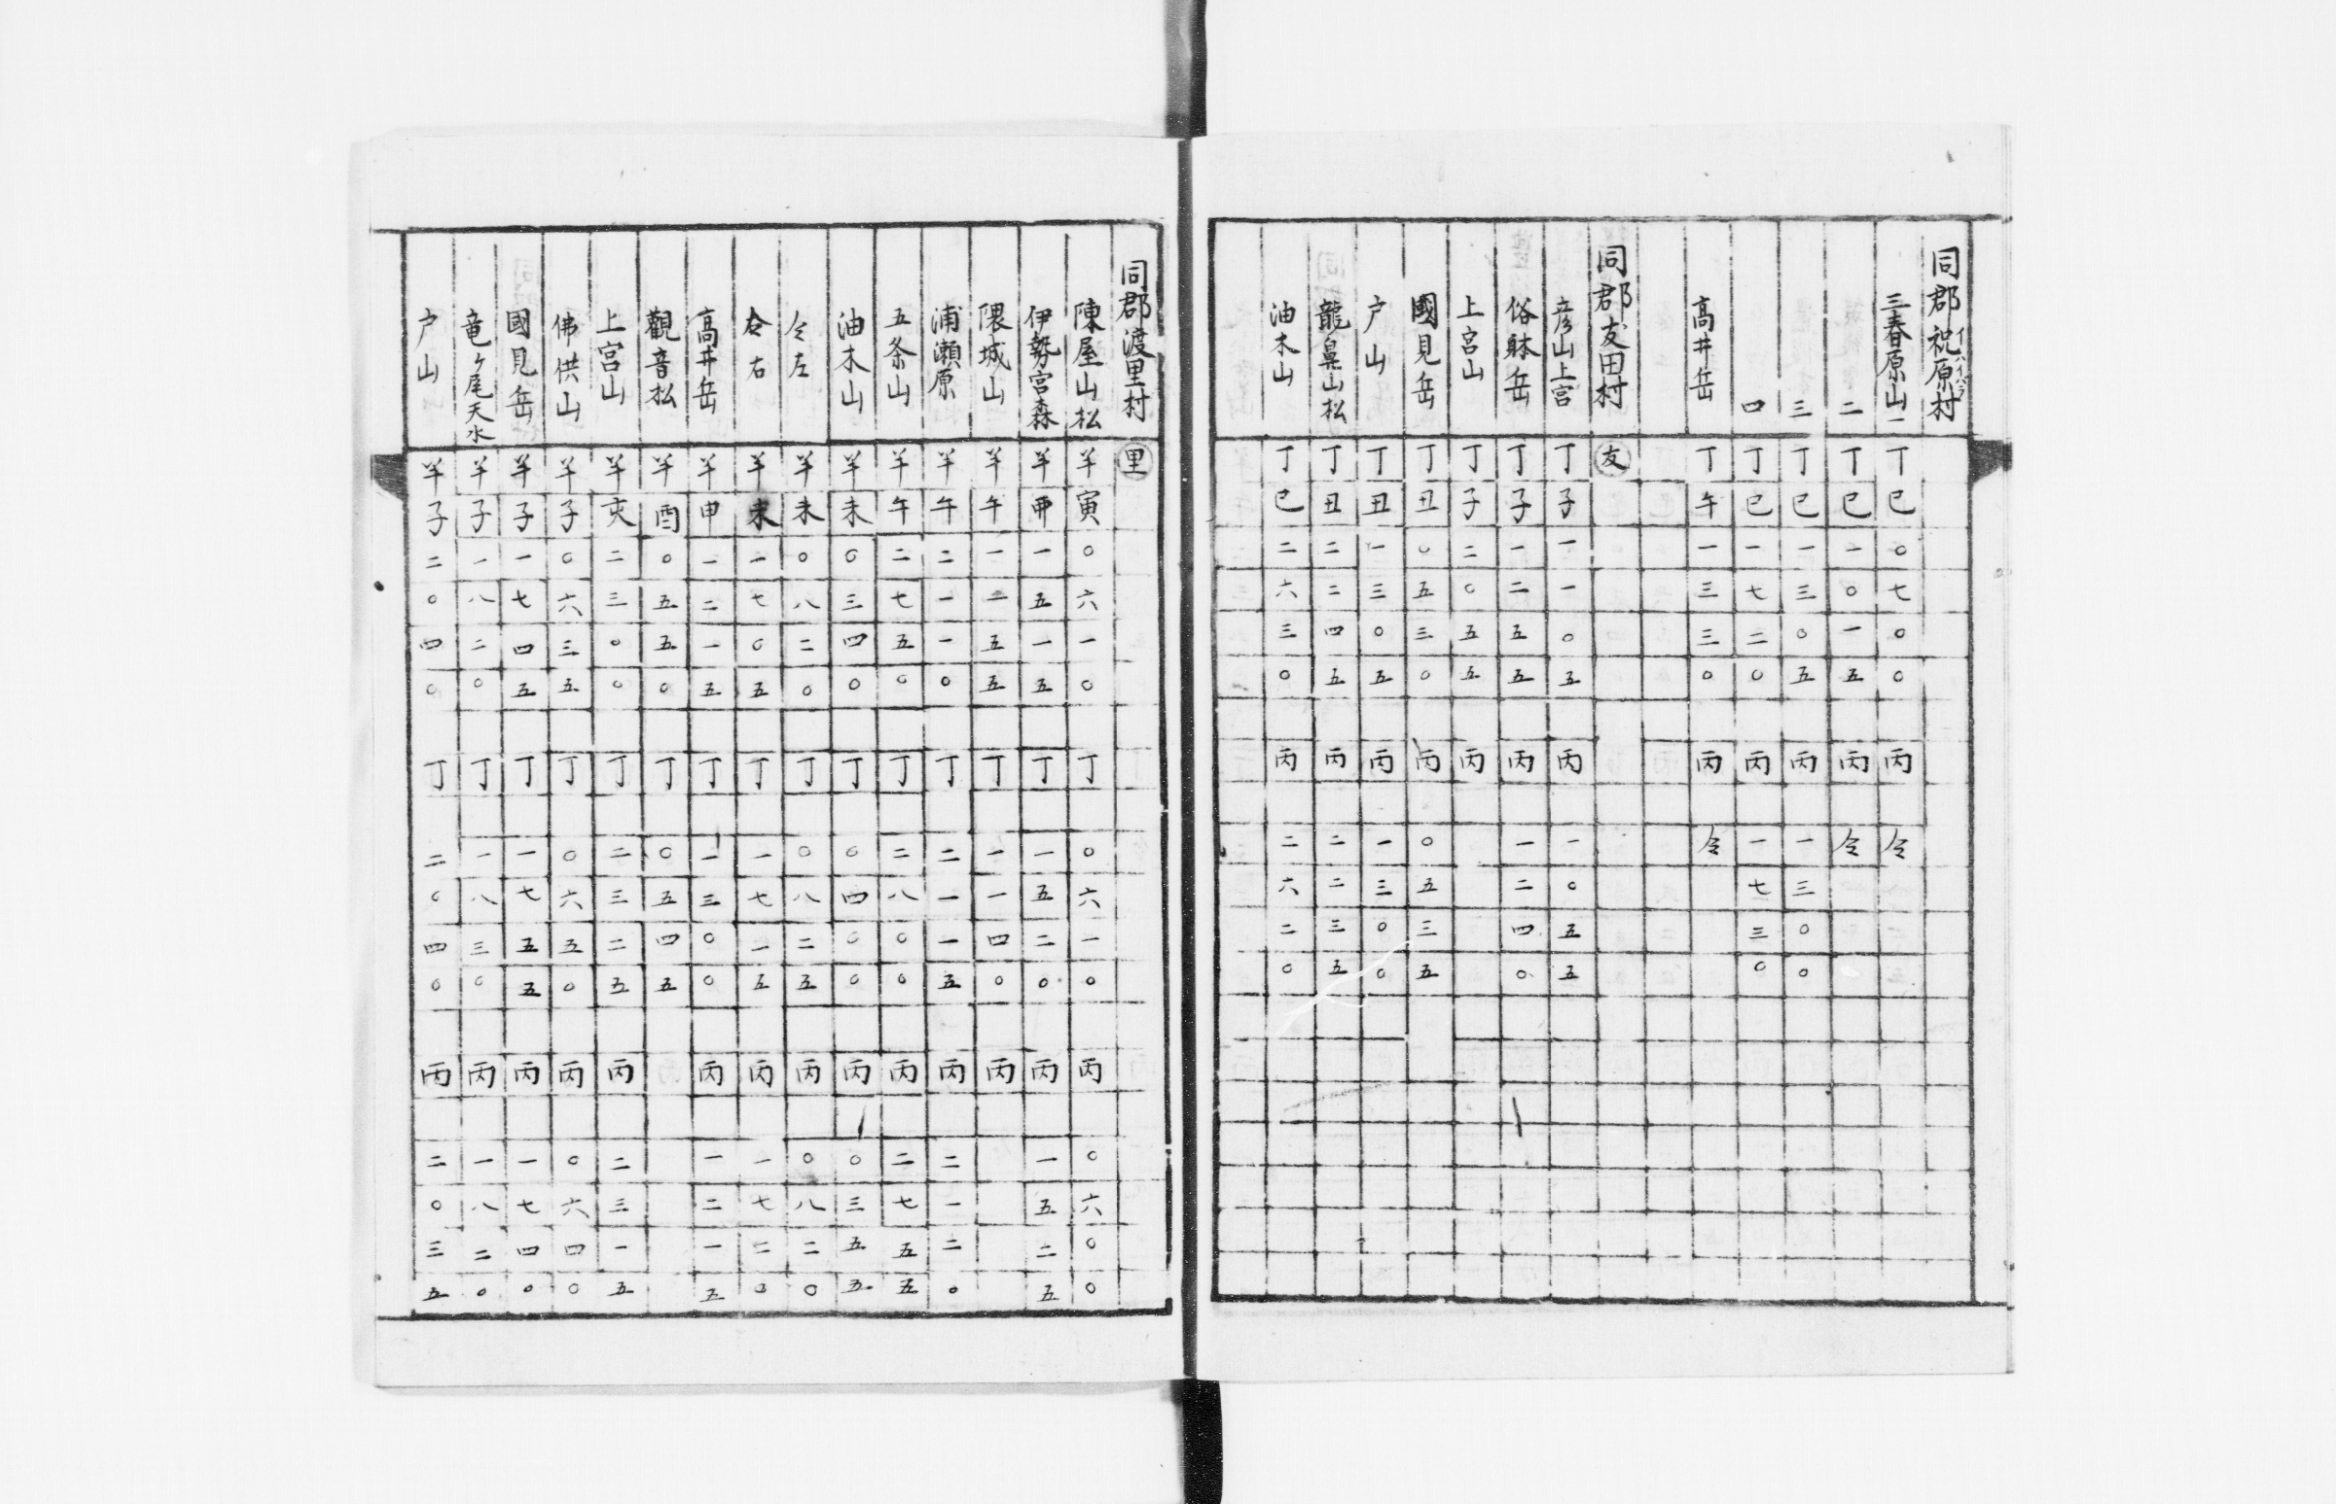 同郡祝原村
イハイハラ
三春原山一 丁巳〇七〇〇 丙 仝
二 丁巳一〇一五 丙 仝
三 丁巳一三〇五 丙 一三〇〇
四 丁巳一七二〇 丙 一七三〇
高井岳 丁午一三三〇 丙 仝
同郡友田村 友
彦山上宮 丁子一一〇五 丙 一〇五五
俗躰岳 丁子一二五五 丙 一二四〇
上宮山 丁子二〇五五 丙
國見岳 丁丑〇五三〇 丙 〇五三五
户山 丁丑一三〇五 丙 一三〇〇
龍鼻山松 丁丑二二四五 丙 二二三五
油木山 丁巳二六三〇 丙 二六二〇
同郡渡里村 里
陳屋山松 羊寅〇六一〇 丁 〇六一〇 丙 〇六〇〇
伊勢宮森 羊 一五一五 丁 一五二〇 丙 一五二五
隈城山 羊午一一五五 丁 一一四〇 丙
浦瀬原 羊午二一一〇 丁 二一一五 丙 二一二〇
五条山 羊午二七五〇 丁 二八〇〇 丙 二七五五
油木山 羊未〇三四〇 丁 〇四〇〇 丙 〇三五五
仝左 羊未〇八二〇 丁 〇八二五 丙 〇八二〇
仝右 羊未一七〇五 丁 一七一五 丙 一七二〇
高井岳 羊申一二一五 丁 一三〇〇 丙 一二一五
觀音松 羊酉〇五五〇 丁 〇五四五
上宮山 羊亥二三〇〇 丁 二三二五 丙 二三一五
佛供山 羊子〇六三五 丁 〇六五〇 丙 〇六四〇
國見岳 羊子一七四五 丁 一七五五 丙 一七四〇
竜ヶ尾天水 羊子一八二〇 丁 一八三〇 丙 一八二〇
户山 羊子二〇四〇 丁 二〇四〇 丙 二〇三五